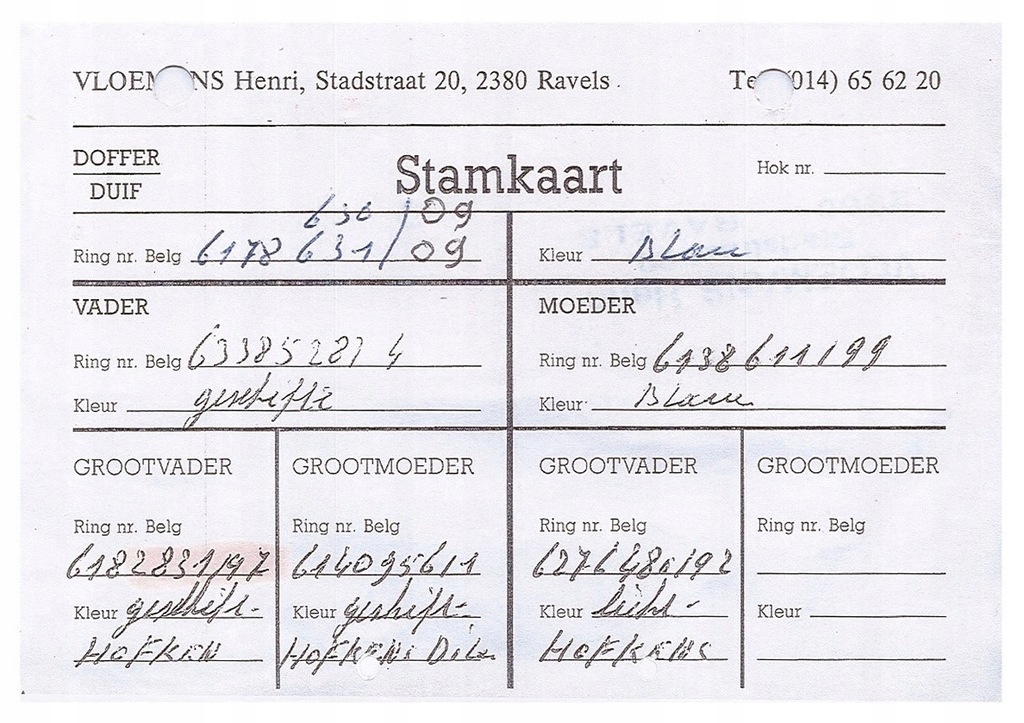 VLOEM NS Henri, Stadstraat 20, 2380 Ravels.
Te (014) 65 62 20
DOFFER
DUIF
Stamkaart
Hok nr.
630/09
Ring nr. Belg 6178 631/09
Kleur Blauw
VADER
MOEDER
Ring nr. Belg
Ring nr. Belg 6138611/99
Kleur geschifte
Kleur Blauw
GROOTVADER
GROOTMOEDER
GROOTVADER
GROOTMOEDER
Ring nr. Belg
Ring nr. Belg
Ring nr. Belg
Ring nr. Belg
6182831/97
Kleur geschift-
Kleur geschift-
Kleur licht-
Kleur
HOFKEN
HOFKENS
HOFKENS